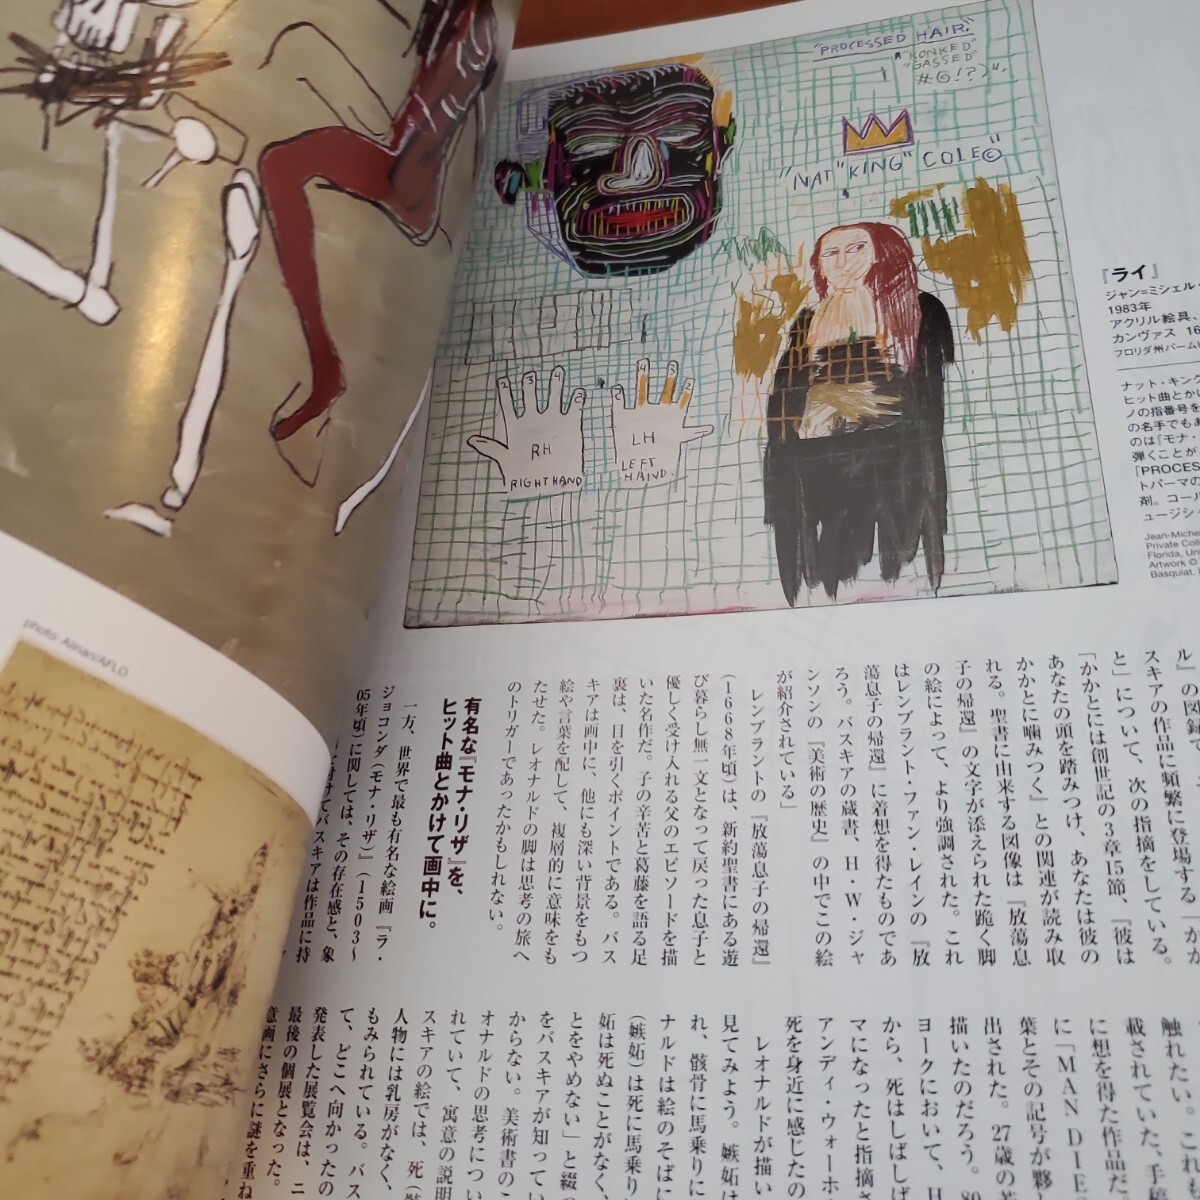 "PROCESSED HAIR."
"KONKED"
"GASSED"
#@!?)",
"NAT "KING" COLE©"
RH
RIGHT HAND
LH
LEFT
HAND.
『ライ』
ジャン=ミシェル・
1983年
アクリル絵具、
カンヴァス 16
フロリダ州パームビ
ナット・キング
ヒット曲とかけ
ノの指番号を
の名手でもあ
のは『モナ・
弾くことが
「PROCESS
トパーマの
剤。コール
ュージシャ
Jean-Michel
Private Coll
Florida, Un
Artwork ©
Basquiat. 
photo: Alinari/AFLO
ル』の図録で
スキアの作品に頻繁に登場する「かか
と」について、次の指摘をしている。
「かかとには創世記の3章15節、『彼は
あなたの頭を踏みつけ、あなたは彼の
かかとに噛みつく』との関連が読み取
れる。聖書に由来する図像は『放蕩息
子の帰還』の文字が添えられた跪く脚
の絵によって、より強調された。これ
はレンブラント・ファン・レインの『放
蕩息子の帰還』に着想を得たものであ
ろう。バスキアの蔵書、H・W・ジャ
ンソンの『美術の歴史』の中でこの絵
が紹介されている」
レンブラントの『放蕩息子の帰還』
(1668年頃)は、新約聖書にある遊
び暮らし無一文となって戻った息子と
優しく受け入れる父のエピソードを描
いた名作だ。子の辛苦と葛藤を語る足
裏は、目を引くポイントである。バス
キアは画中に、他にも深い背景をもつ
絵や言葉を配して、複層的に意味をも
たせた。レオナルドの脚は思考の旅へ
のトリガーであったかもしれない。
有名な『モナ・リザ』を、
ヒット曲とかけて画中に。
一方、世界で最も有名な絵画『ラ・
ジョコンダ(モナ・リザ)』(1503〜
05年頃)に関しては、その存在感と、象
けてバスキアは作品に持
触れたい。これも
載されていた、手
に想を得た作品だ
に「MAN DIE
葉とその記号が夥
出された。27歳の若
描いたのだろう。80
ヨークにおいて、H
から、死はしばしば
マになったと指摘さ
アンディ・ウォーホ
死を身近に感じたの
レオナルドが描い
見てみよう。嫉妬は
れ、骸骨に馬乗りに
ナルドは絵のそばに
(嫉妬)は死に馬乗り
妬は死ぬことがなく、
とをやめない」と綴
をバスキアが知ってい
からない。美術書のこ
オナルドの思考につい
れていて、寓意の説明
スキアの絵では、死(骸
人物には乳房がなく、
もみられている。バス
て、どこへ向かったの
発表した展覧会は、ニ
最後の個展となった。
意画にさらに謎を重ね